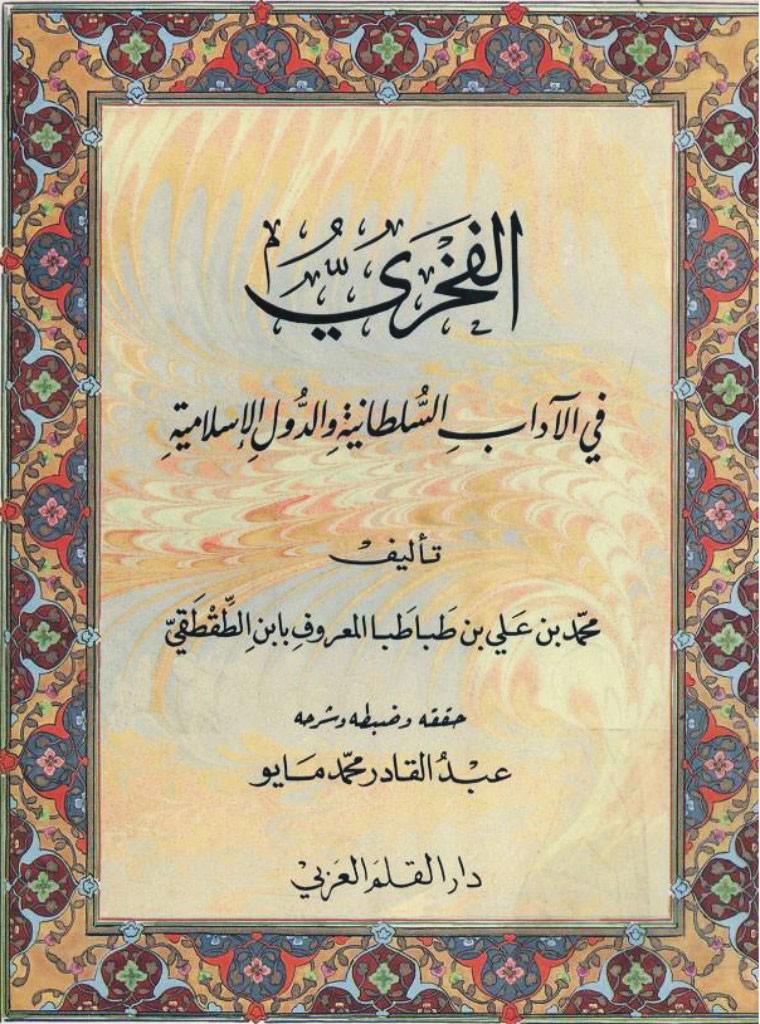 الفخريّ
في الآدابِ السُّلطانيةِ والدُّولِ الإسلاميةِ
تأليف
محمّد بن عَلي بن طَباطَبا المعروفِ بابنِ الطِّقْطَقَيّ
حققه وضبطه وشرحه
عبْدُ القادر محمّد مَايو
دار القلم العَربيْ